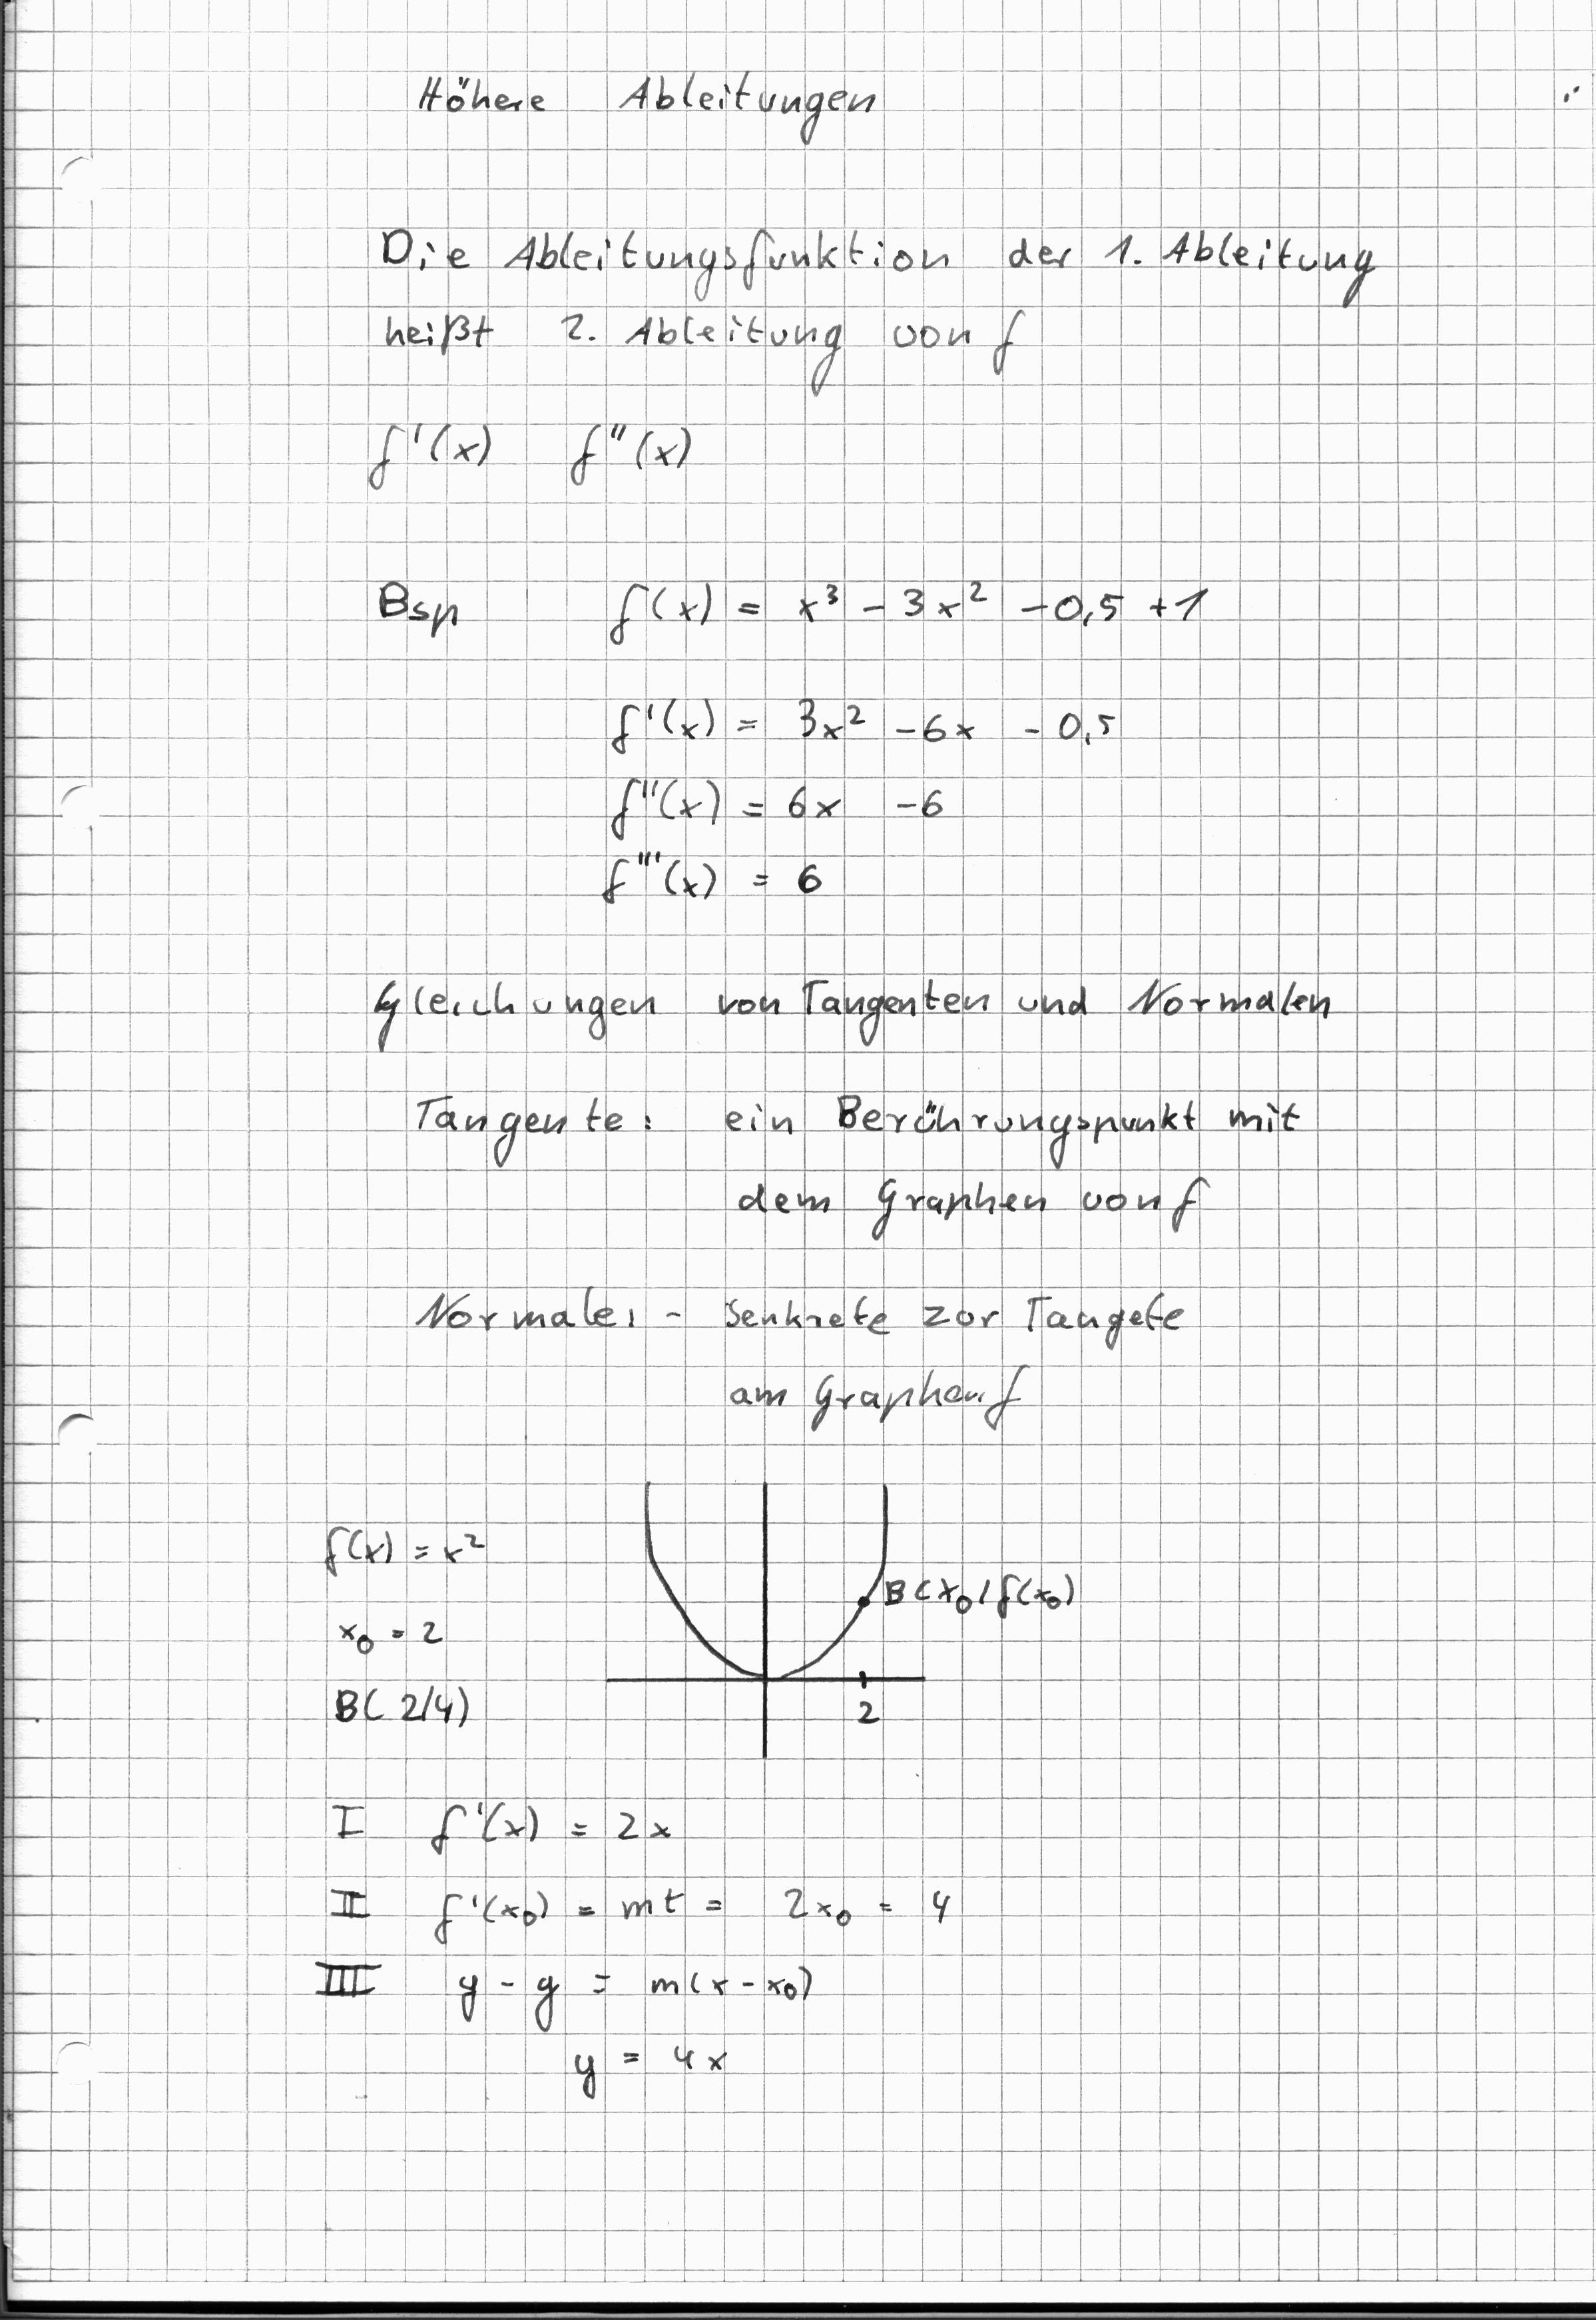 Höhere Ableitungen
Die Ableitungsfunktion der 1. Ableitung
heißt 2. Ableitung von f
f'(x) f''(x)
Bsp f(x) = x³ - 3x² - 0,5 + 1
f'(x) = 3x² - 6x - 0,5
f''(x) = 6x - 6
f'''(x) = 6
Gleichungen von Tangenten und Normalen
Tangente: ein Berührungspunkt mit
dem Graphen von f
Normale: - Senkrete zur Tangete
am Graphen f
f(x) = x²
B(x₀/f(x₀)
x₀ = 2
B( 2/4)
2
I f'(x) = 2x
II f'(x₀) = mt = 2x₀ = 4
III y - y = m(x - x₀)
y = 4x